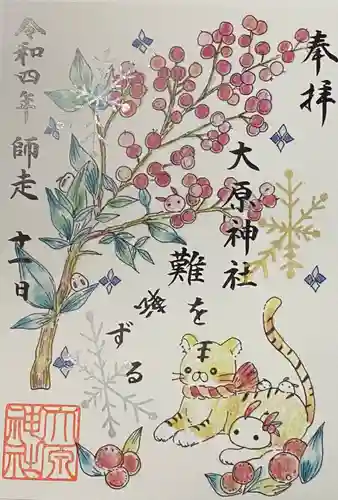 奉拝
大原神社
難を
ずる
令和四年
師走
十一日
大原
神社